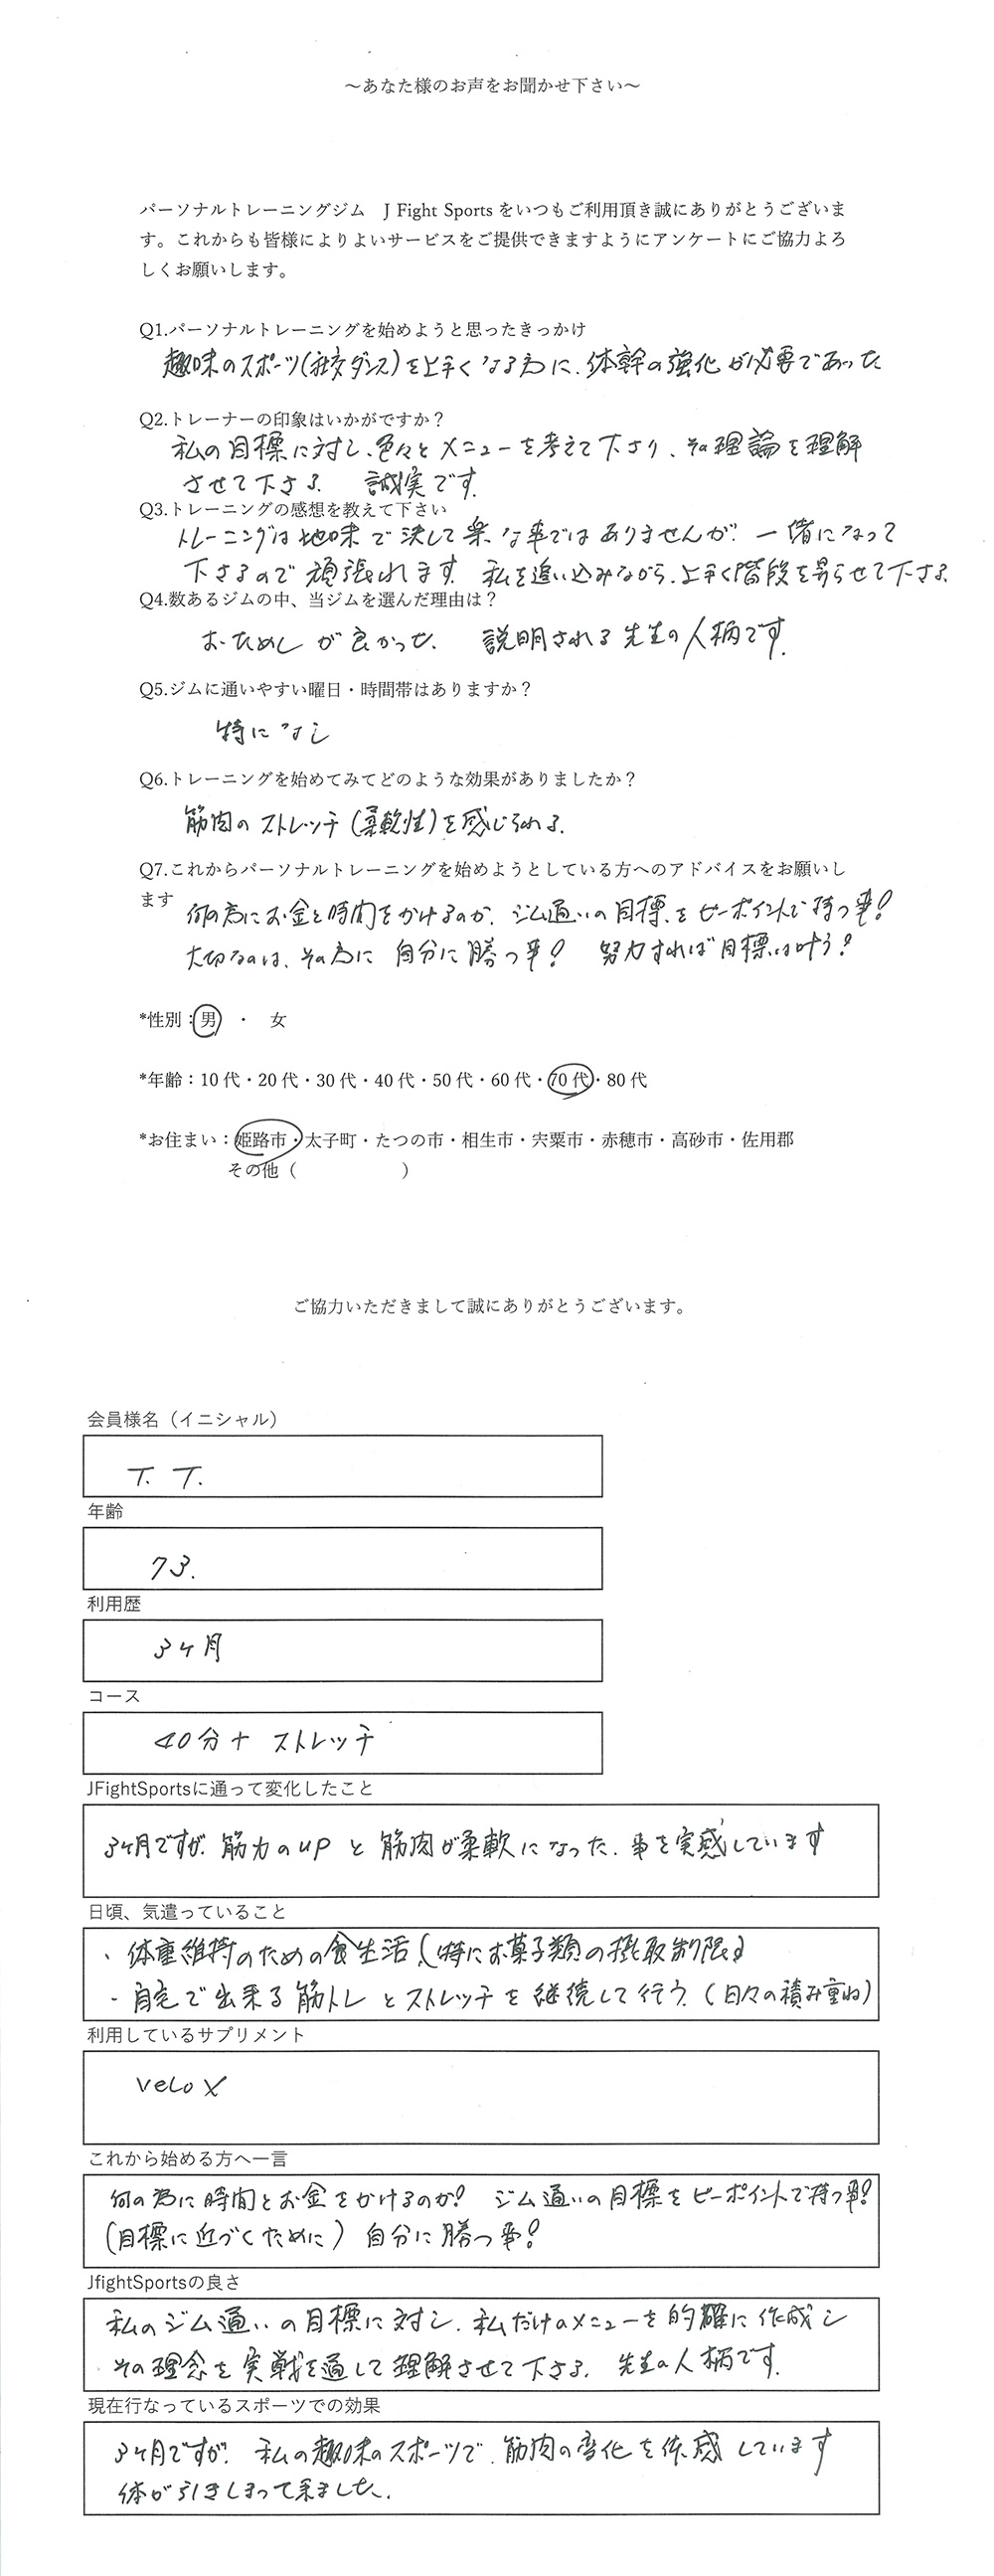 ～あなた様のお声をお聞かせ下さい～
パーソナルトレーニングジム　J Fight Sports をいつもご利用頂き誠にありがとうございま
す。これからも皆様によりよいサービスをご提供できますようにアンケートにご協力よろ
しくお願いします。
Q1.パーソナルトレーニングを始めようと思ったきっかけ
趣味のスポーツ(社交ダンス)を上手くなる為に、体幹の強化が必要であった
Q2.トレーナーの印象はいかがですか？
私の目標に対し、色々とメニューを考えて下さり、その理論を理解
させて下さる。　誠実です。
Q3.トレーニングの感想を教えて下さい
トレーニングは地味で決して楽な事ではありませんが、一緒になって
下さるので頑張れます。私を追い込みながら、上手く階段を昇らせて下さる。
Q4.数あるジムの中、当ジムを選んだ理由は？
おためしが良かった、　説明される先生の人柄です。
Q5.ジムに通いやすい曜日・時間帯はありますか？
特になし
Q6.トレーニングを始めてみてどのような効果がありましたか？
筋肉のストレッチ(柔軟性)を感じられる。
Q7.これからパーソナルトレーニングを始めようとしている方へのアドバイスをお願いし
ます
何の為にお金と時間をかけるのか、ジム通いの目標をピーポイントで持つ事！
大切なのは、その為に自分に勝つ事！　努力すれば目標は叶う！
*性別：男　・　女
*年齢：10 代・20 代・30 代・40 代・50 代・60 代・70 代・80 代
*お住まい：姫路市・太子町・たつの市・相生市・宍粟市・赤穂市・高砂市・佐用郡
その他（　　　　　　）
ご協力いただきまして誠にありがとうございます。
会員様名（イニシャル）
T. T.
年齢
73.
利用歴
3ヶ月
コース
40分+ ストレッチ
JFightSportsに通って変化したこと
3ヶ月ですが、筋力のUPと筋肉が柔軟になった、事を実感しています
日頃、気遣っていること
・体重維持のための食生活、(特にお菓子類の摂取制限)
・自宅で出来る筋トレとストレッチを継続して行う。(日々の積み重ね)
利用しているサプリメント
VeLoX
これから始める方へ一言
何の為に時間とお金をかけるのか！　ジム通いの目標をピーポイントで持つ事！
(目標に近づくために)　自分に勝つ事！
JfightSportsの良さ
私のジム通いの目標に対し、私だけのメニューを的確に作成し
その理念を実戦を通して理解させて下さる。先生の人柄です。
現在行なっているスポーツでの効果
3ヶ月ですが、私の趣味のスポーツで、筋肉の変化を体感しています
体が引きしまって来ました。